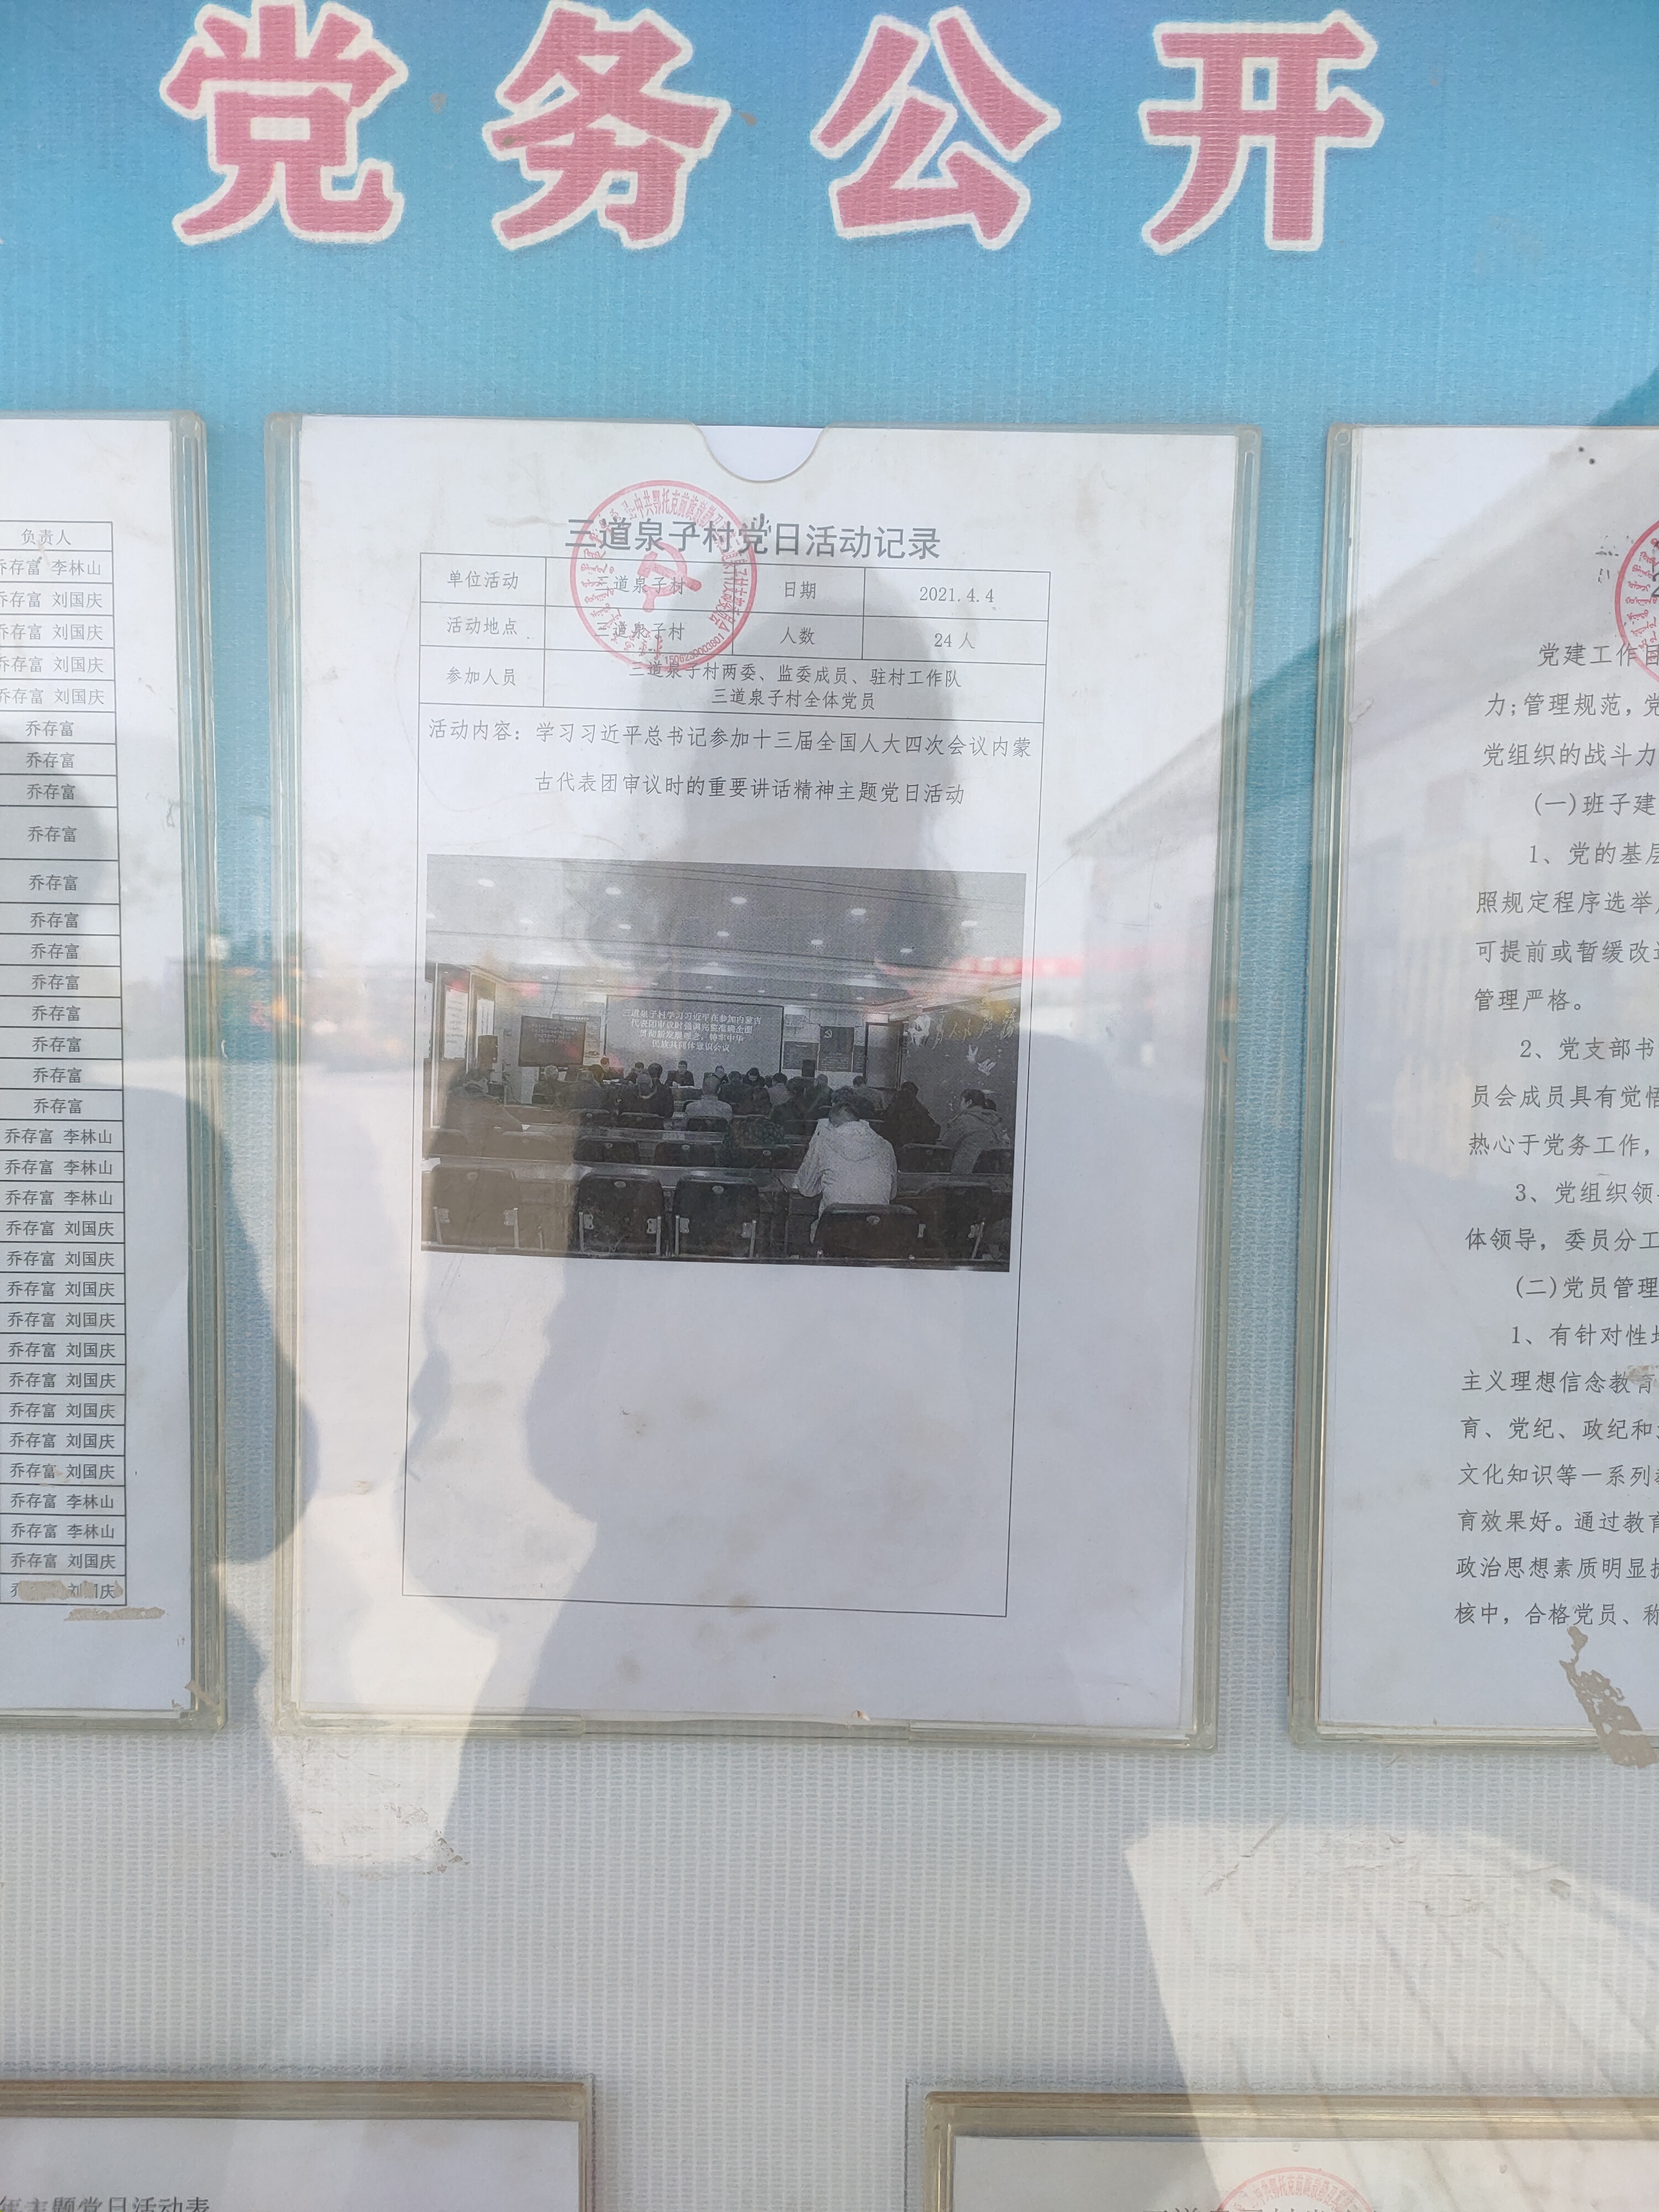 党务公开
负责人
乔存富 李林山
乔存富 刘国庆
乔存富 刘国庆
乔存富 刘国庆
乔存富 刘国庆
乔存富
乔存富
乔存富
乔存富
乔存富
乔存富
乔存富
乔存富
乔存富
乔存富
乔存富
乔存富
乔存富 李林山
乔存富 李林山
乔存富 李林山
乔存富 刘国庆
乔存富 刘国庆
乔存富 刘国庆
乔存富 刘国庆
乔存富 刘国庆
乔存富 刘国庆
乔存富 刘国庆
乔存富 刘国庆
乔存富 刘国庆
乔存富 李林山
乔存富 李林山
乔存富 刘国庆
刘国庆
三道泉子村党日活动记录
单位活动 三道泉子村 日期 2021.4.4
活动地点 三道泉子村 人数 24 人
参加人员 三道泉子村两委、监委成员、驻村工作队
三道泉子村全体党员
活动内容：学习习近平总书记参加十三届全国人大四次会议内蒙
古代表团审议时的重要讲话精神主题党日活动
三道泉子村学习习近平在参加内蒙古
代表团审议时强调完整准确全面
贯彻新发展理念，铸牢中华
民族共同体意识会议
党建工作目
力;管理规范,党
党组织的战斗力
(一)班子建
1、党的基层
照规定程序选举
可提前或暂缓改
管理严格。
2、党支部书
员会成员具有党悟
热心于党务工作，
3、党组织领
体领导，委员分工
(二)党员管理
1、有针对性
主义理想信念教育
育、党纪、政纪和
文化知识等一系列
育效果好。通过教育
政治思想素质明显
核中，合格党员、称
年主题党日活动表